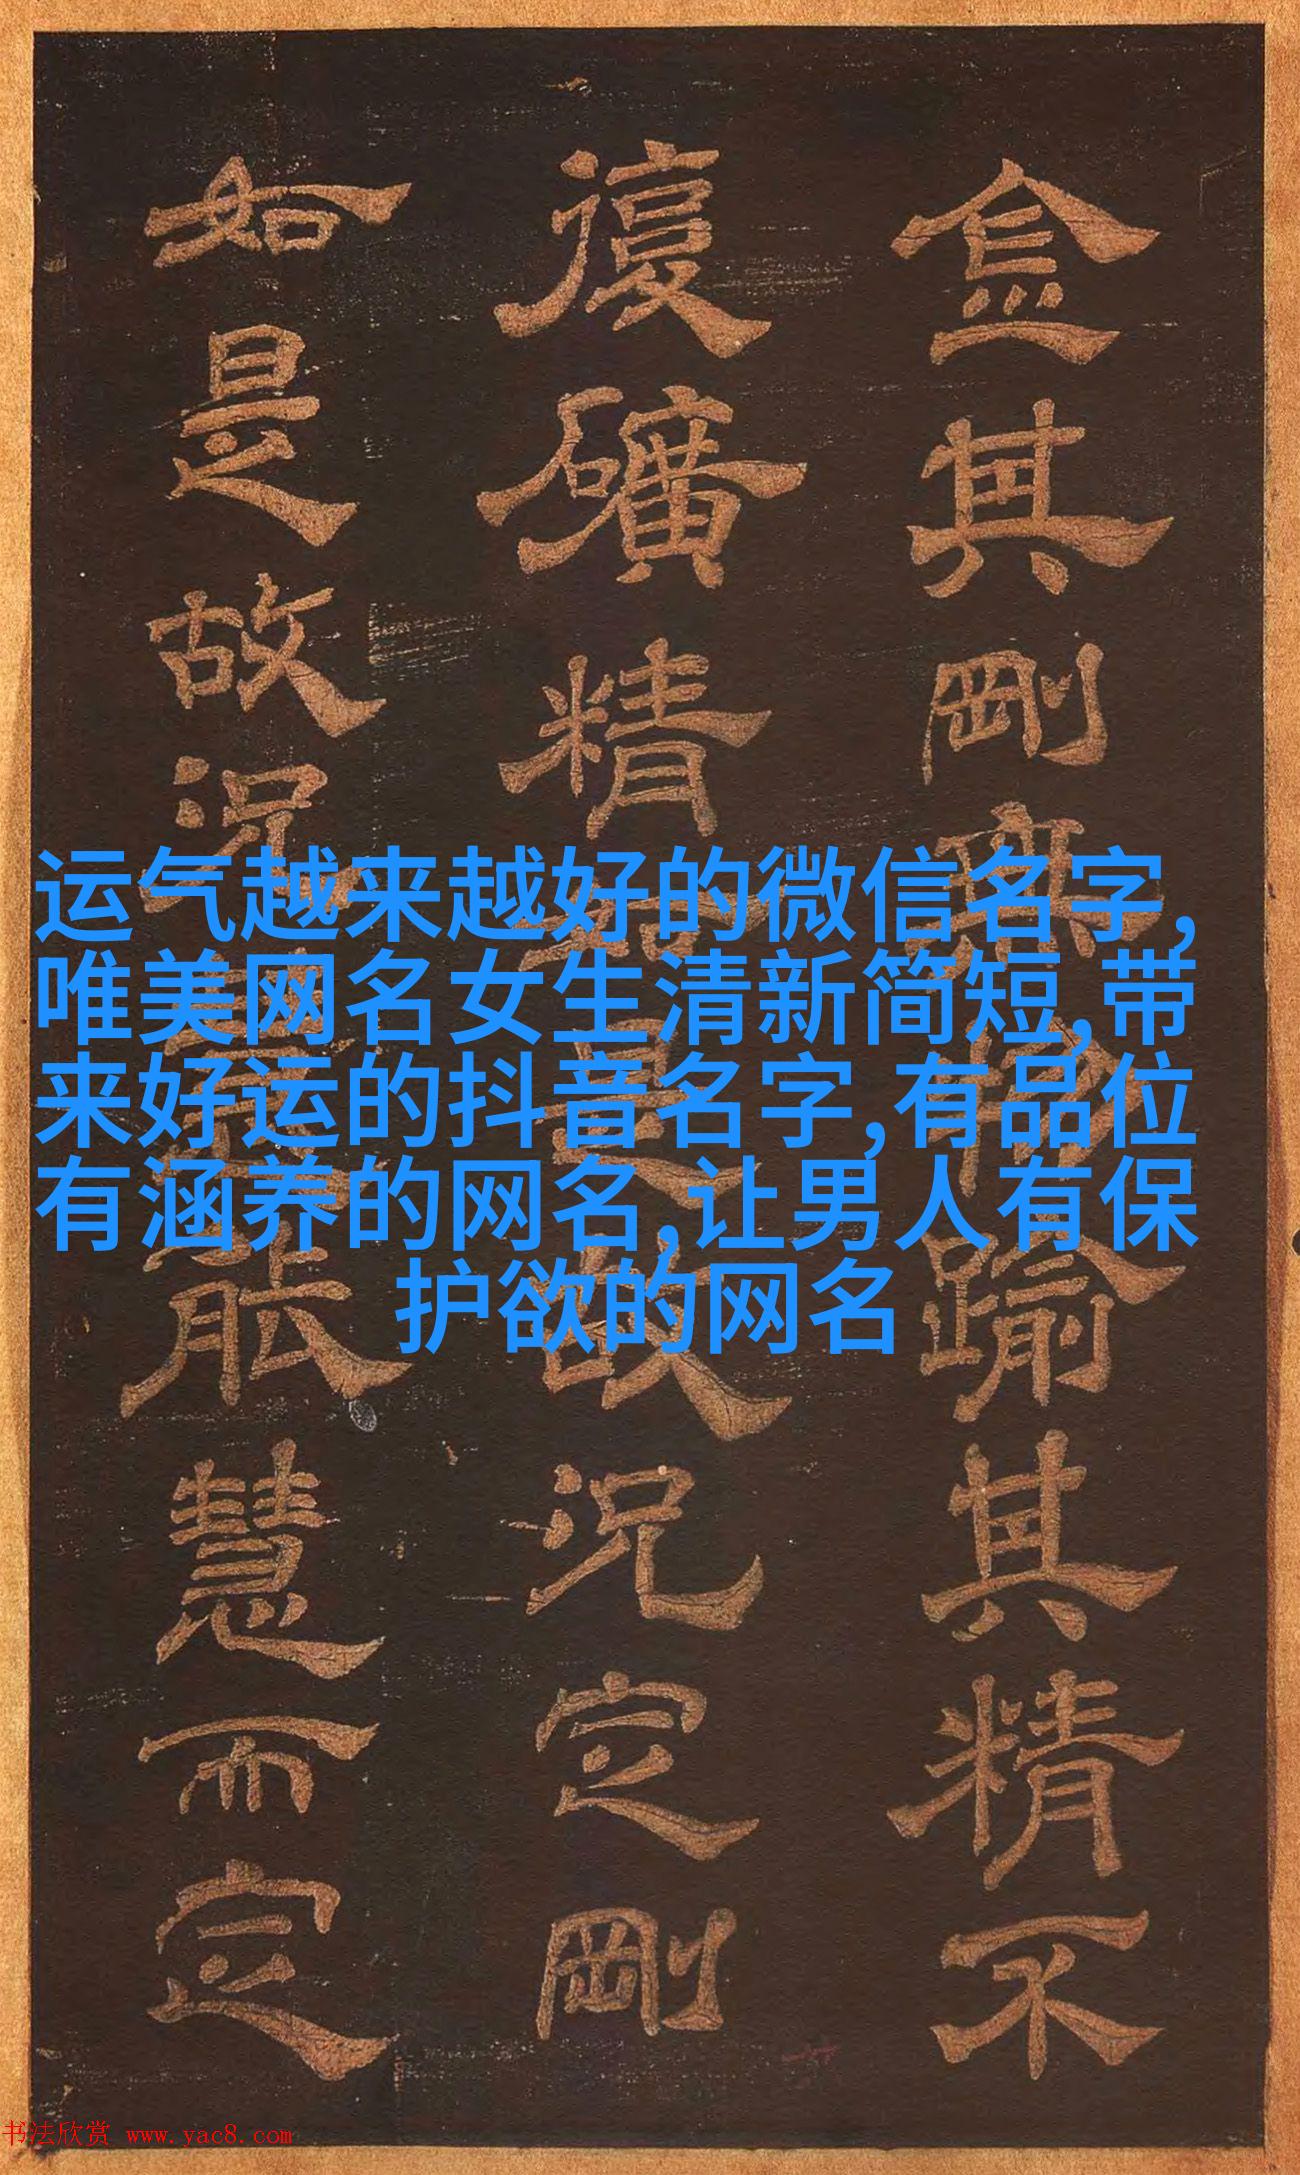 金其剛無物踰其精不
復礦精是故況定剛
如是故況能慧而定
运气越来越好的微信名字,
唯美网名女生清新简短,带
来好运的抖音名字,有品位
有涵养的网名,让男人有保
护欲的网名
书法欣赏 www.yac8.com